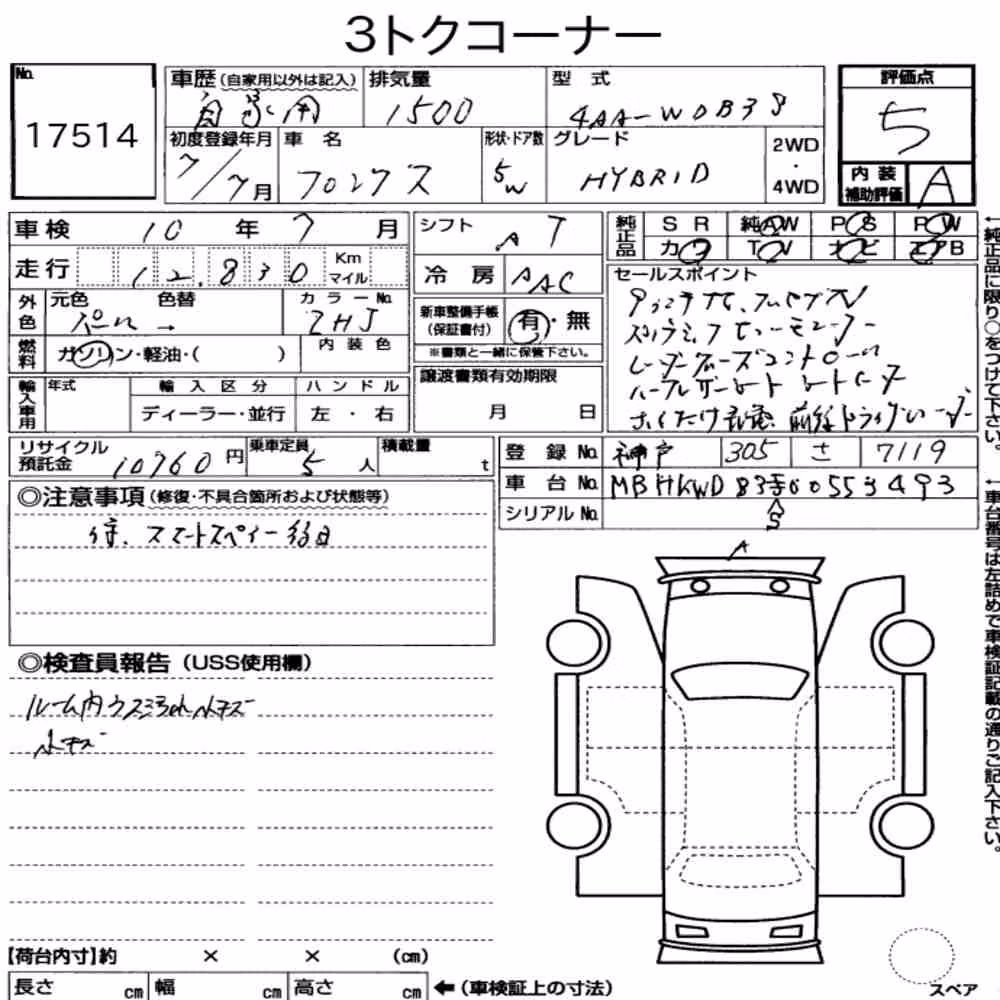 3トクコーナー
No. 17514
車歴(自家用以外は記入) 自家用
排気量 1500
型式 4AA-WDB3S
評価点 5
内装補助評価 A
初度登録年月 7/7月
車名 フロンクス
形状・ドア数 5W
グレード HYBRID
2WD・4WD
車検 10年7月
走行 12,830 Km マイル
シフト AT
冷房 AAC
純正品 SR 純AW PS PW
カワ TV ナビ エアB
外色 元色 パール→ 色替
カラーNo. ZHJ
燃料 ガソリン・軽油・( )
内装色
新車整備手帳(保証書付) 有・無
※書類と一緒に保管下さい。
輸入車用 年式 輸入区分 ハンドル
ディーラー・並行 左・右
譲渡書類有効期限
月 日
セールスポイント
レーダークルーズコントロール
ハーフレザーシート シートヒーター
前後ドライブレコーダー
←純正品に限り○をつけて下さい。
リサイクル預託金 10760円
乗車定員 5人
積載量 t
登録No. 神戸 305 さ 7119
車台No. MBHKWD
シリアルNo.
←車台番号は左詰めで車検証記載の通りご記入下さい。
◎注意事項(修復・不具合箇所および状態等)
スマートスペアキー後日
A
◎検査員報告(USS使用欄)
ルーム内ウス汚れ小キズ
小キズ
【荷台内寸】約 × × (cm)
長さ cm 幅 cm 高さ cm ←(車検証上の寸法)
スペア